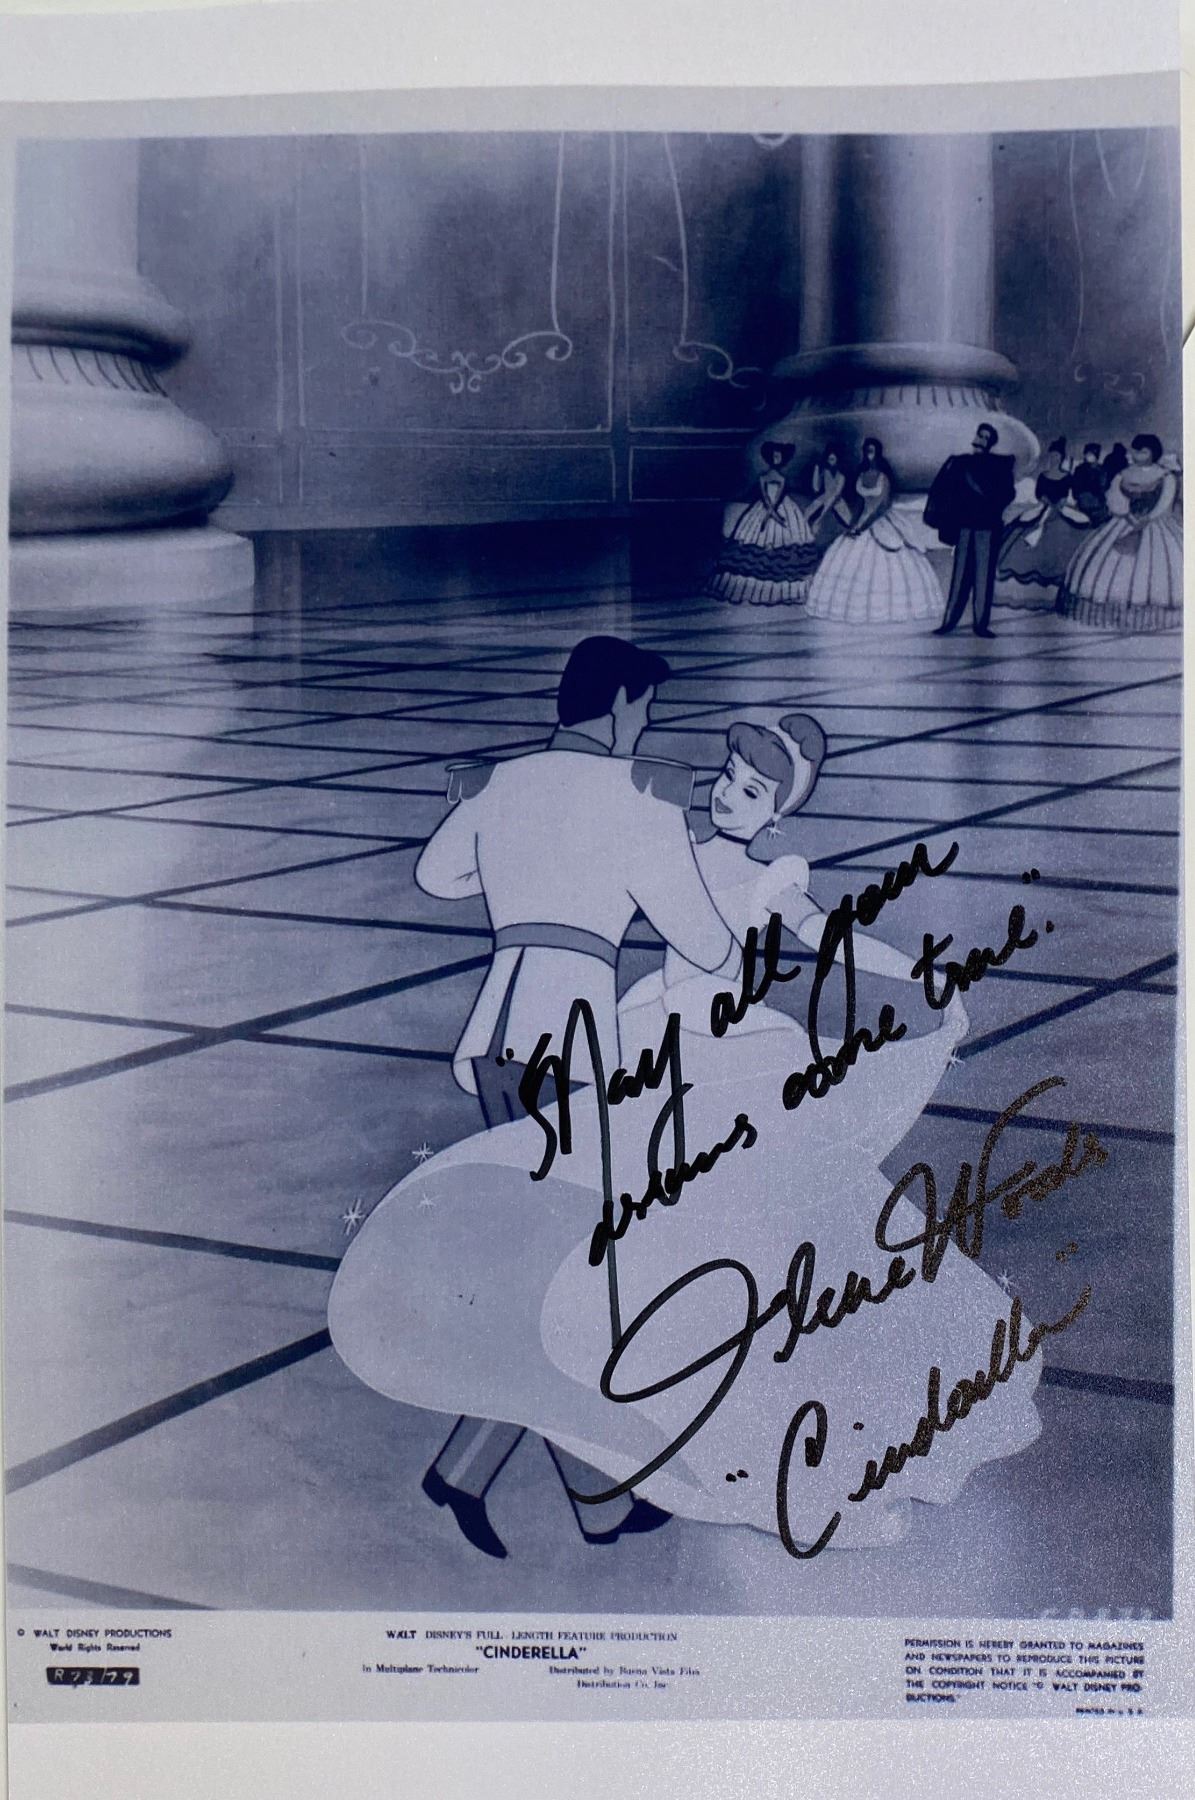 "May all your
dreams come true."
Ilene Woods
"Cinderella"
© WALT DISNEY PRODUCTIONS
World Rights Reserved
R 73/79
WALT DISNEY'S FULL LENGTH FEATURE PRODUCTION
"CINDERELLA"
In Multiplane Technicolor Distributed by Buena Vista Film
Distribution Co. Inc
PERMISSION IS HEREBY GRANTED TO MAGAZINES
AND NEWSPAPERS TO REPRODUCE THIS PICTURE
ON CONDITION THAT IT IS ACCOMPANIED BY
THE COPYRIGHT NOTICE "© WALT DISNEY PRO-
DUCTIONS."
PRINTED IN U. S. A.